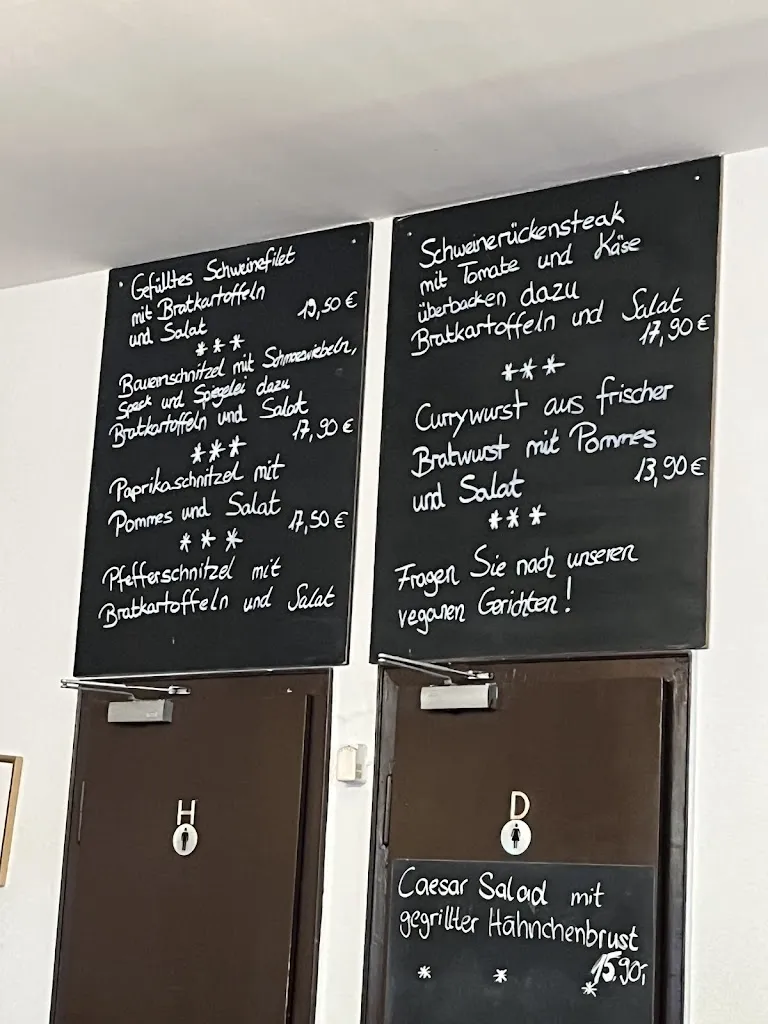 Gefülltes Schweinefilet
mit Bratkartoffeln
und Salat 19,50 €
***
Bauernschnitzel mit Schmorzwiebeln,
Speck und Spiegelei dazu
Bratkartoffeln und Salat
17,90 €
***
Paprikaschnitzel mit
Pommes und Salat
17,50 €
***
Pfefferschnitzel mit
Bratkartoffeln und Salat
Schweinerückensteak
mit Tomate und Käse
überbacken dazu
Bratkartoffeln und Salat
17,90 €
***
Currywurst aus frischer
Bratwurst mit Pommes
und Salat 13,90 €
***
Fragen Sie nach unseren
veganen Gerichten!
H
D
Caesar Salad mit
gegrillter Hähnchenbrust
15,90,
* * *